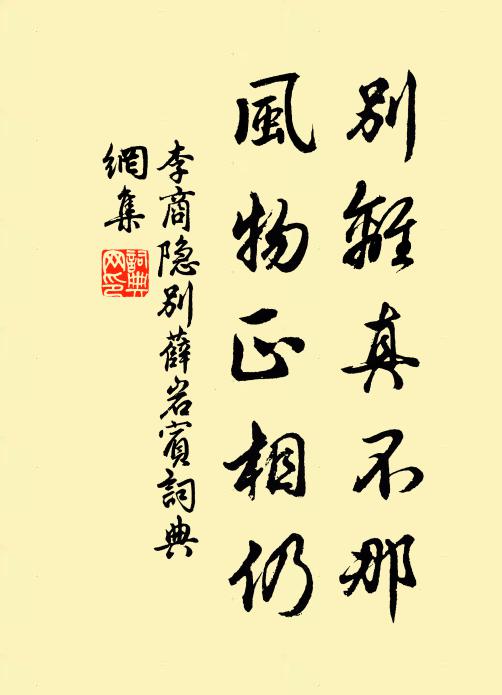 別離真不那
風物正相仍
李商隐别薛岩賓詞典
網集
詞典
网印